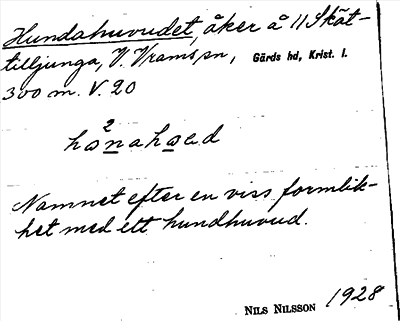 Hundahuvudet, åker å 11 Skät-
tilljunga, V. Vrams sn, Gärds hd, Krist. l.
300 m. V. 20
Namnet efter en viss formlik-
het med ett hundhuvud.
NILS NILSSON 1928